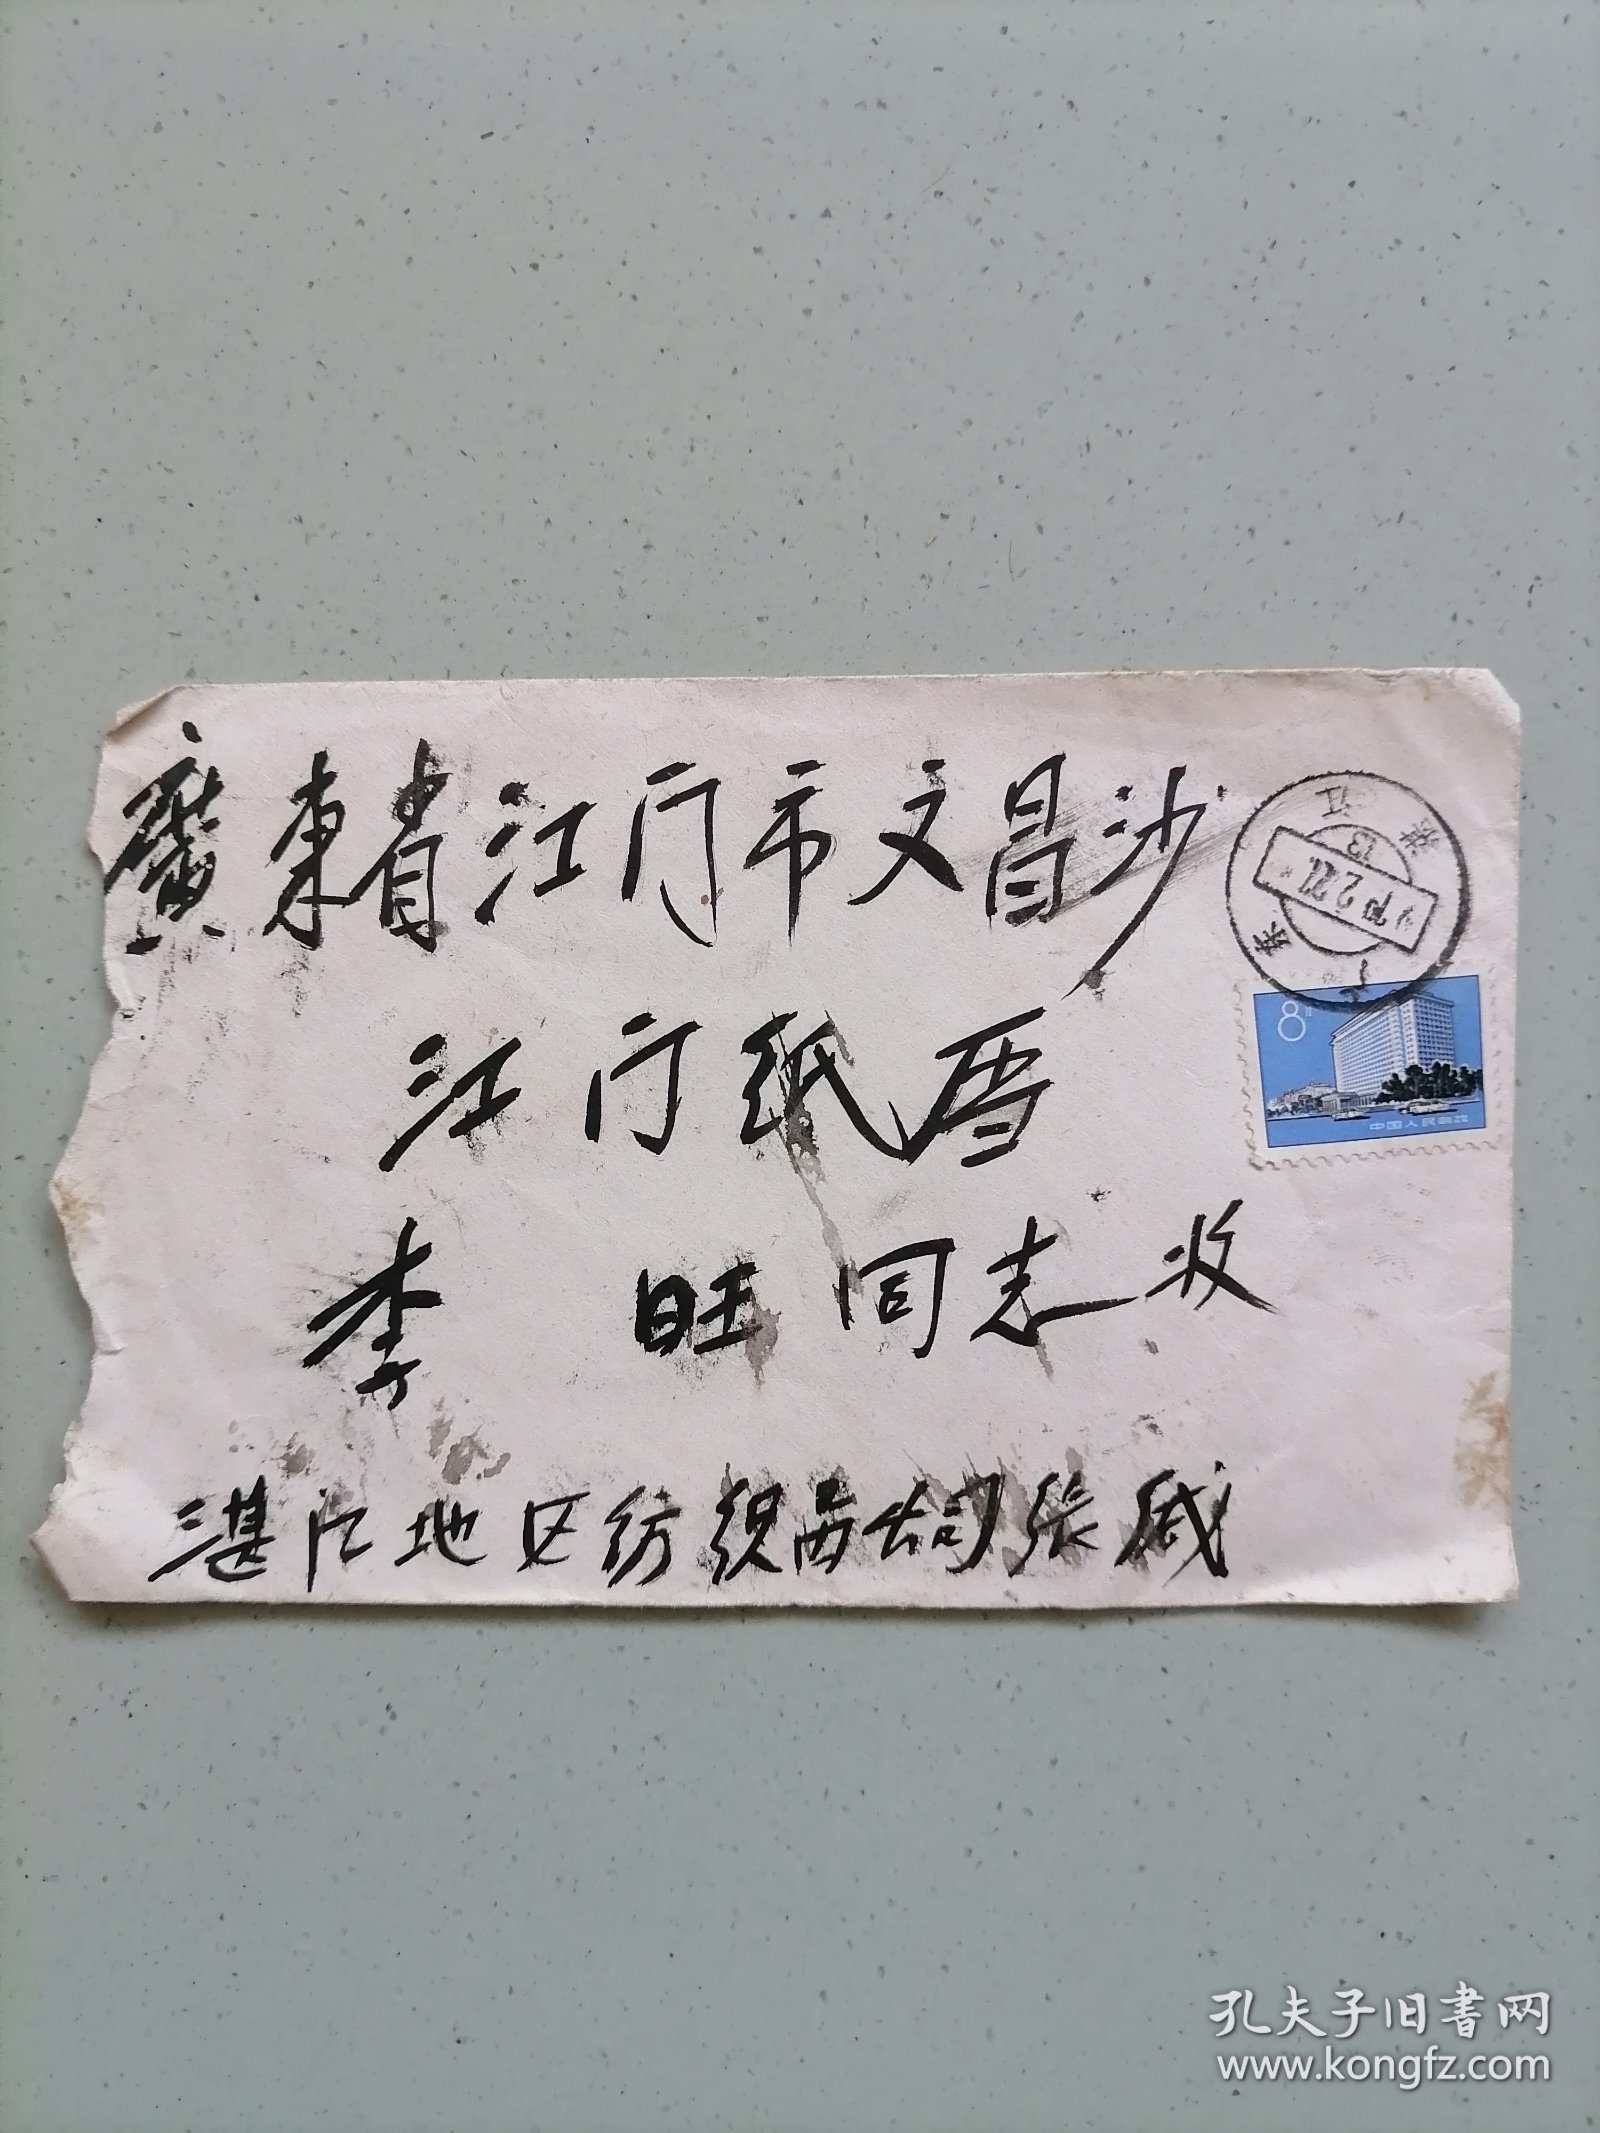 廣東省江门市文昌沙
江门纸
李 旺 同志收
湛江地区纺织品公司张
广东
湛江
13
8分
中国人民邮政
孔夫子旧书网
www.kongfz.com